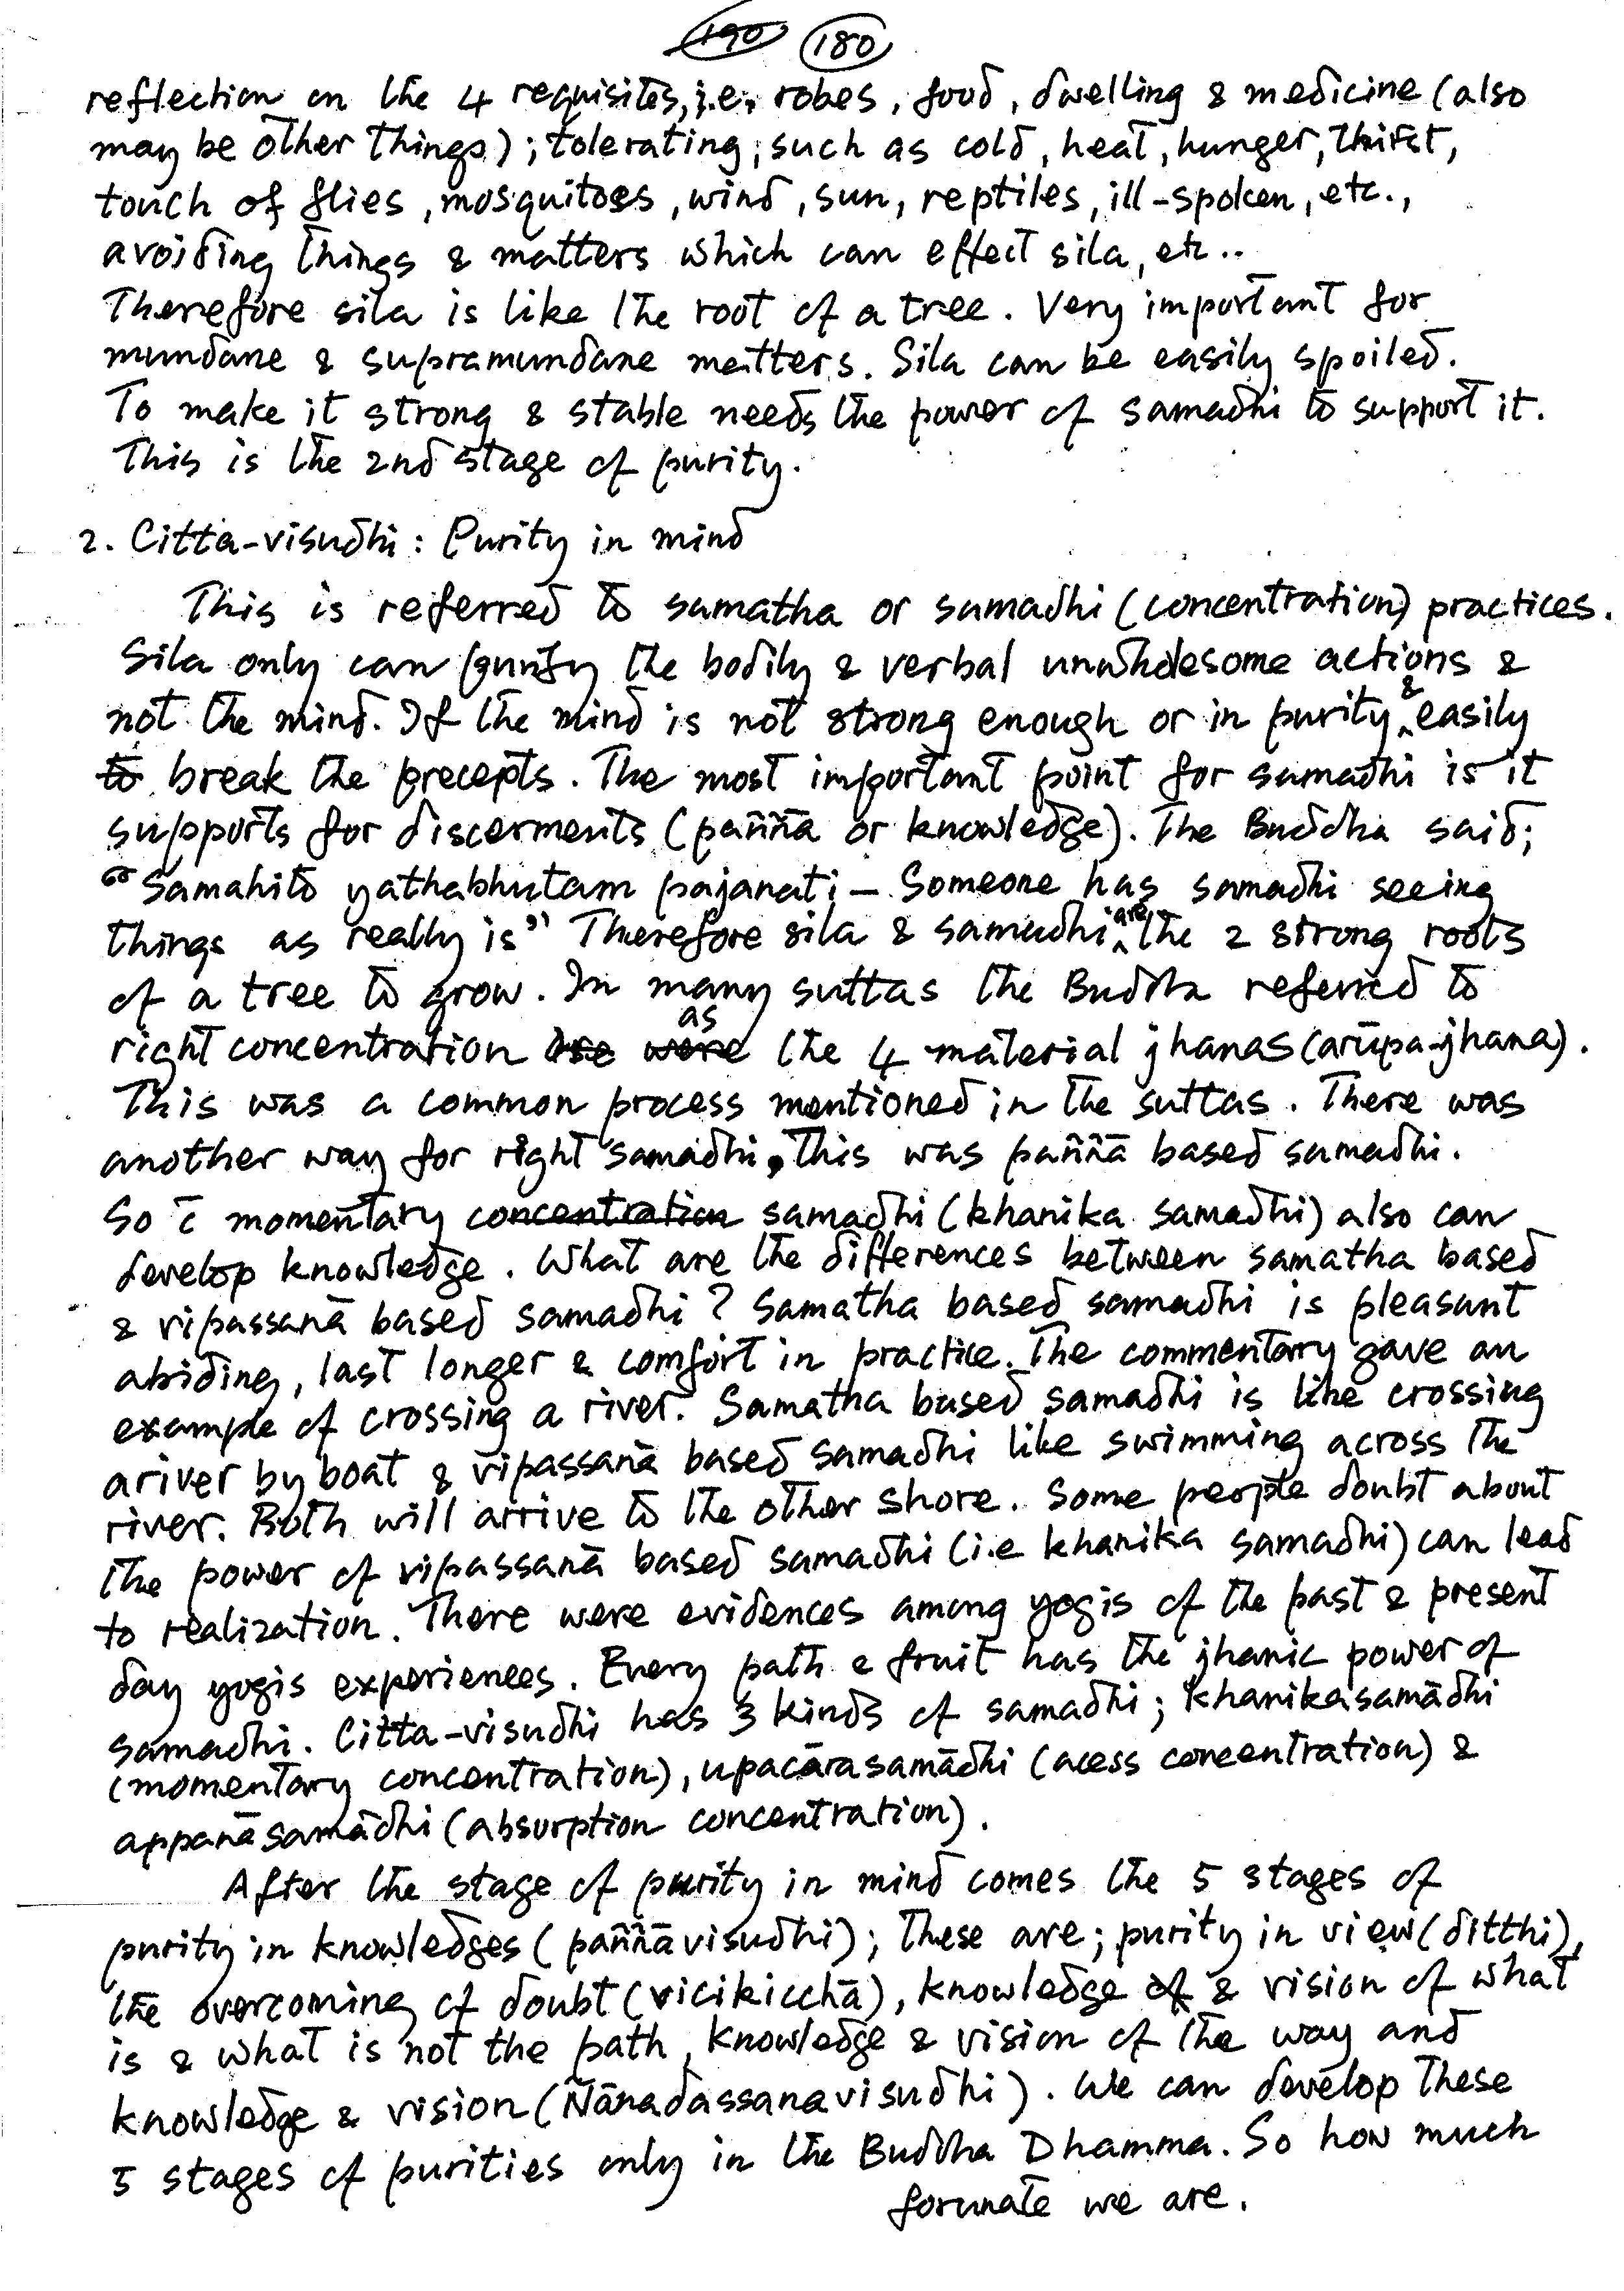 190 180
reflection on the 4 requisites, i.e, robes, food, dwelling & medicine (also
may be other things); tolerating, such as cold, heat, hunger, thirst,
touch of flies, mosquitoes, wind, sun, reptiles, ill-spoken, etc.,
avoiding things & matters which can effect sila, etc..
Therefore sila is like the root of a tree. Very important for
mundane & supramundane matters. Sila can be easily spoiled.
To make it strong & stable needs the power of samadhi to support it.
This is the 2nd stage of purity.
2. Citta-visudhi: Purity in mind
This is referred to samatha or samadhi (concentration) practices.
Sila only can purify the bodily & verbal unwholesome actions &
not the mind. If the mind is not strong enough or in purity & easily
to break the precepts. The most important point for samadhi is it
supports for discernments (paññā or knowledge). The Buddha said;
"Samahito yathabhutam pajanati – Someone has samadhi seeing
things as really is" Therefore sila & samadhi are the 2 strong roots
of a tree to grow. In many suttas the Buddha referred to
right concentration were as the 4 material jhanas (arūpa-jhana).
This was a common process mentioned in the suttas. There was
another way for right samadhi, This was paññā based samadhi.
So c̄ momentary concentration samadhi (khanika samadhi) also can
develop knowledge. What are the differences between samatha based
& vipassanā based samadhi? Samatha based samadhi is pleasant
abiding, last longer & comfort in practice. The commentary gave an
example of crossing a river. Samatha based samadhi is like crossing
a river by boat & vipassanā based samadhi like swimming across the
river. Both will arrive to the other shore. Some people doubt about
the power of vipassanā based samadhi (i.e khanika samadhi) can lead
to realization. There were evidences among yogis of the past & present
day yogis experiences. Every path & fruit has the jhanic power of
samadhi. Citta-visudhi has 3 kinds of samadhi; khanikasamādhi
(momentary concentration), upacārasamādhi (acess concentration) &
appanāsamādhi (absorption concentration).
After the stage of purity in mind comes the 5 stages of
purity in knowledges (paññāvisudhi); These are; purity in view (ditthi),
the overcoming of doubt (vicikicchā), knowledge of & vision of what
is & what is not the path, knowledge & vision of the way and
knowledge & vision (Ñānadassanavisudhi). We can develop these
5 stages of purities only in the Buddha Dhamma. So how much
forunate we are.